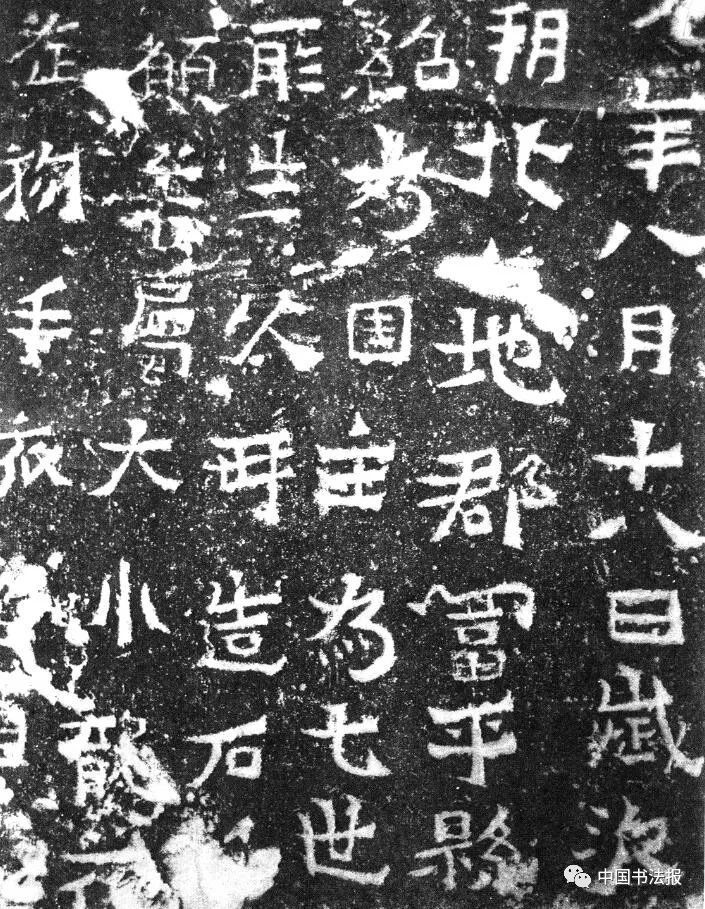 年八月十八日歲次
朔北地郡富平縣
紹國主為七世
所生父母造石
願眷屬大小龍
物垂
中国书法报